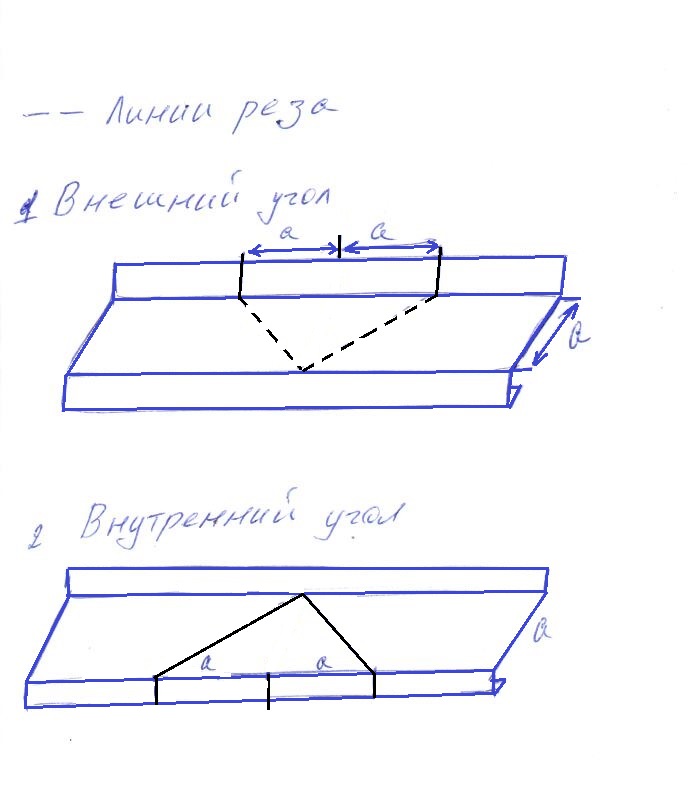 -- Линии реза
1 Внешний угол
a a
a
2 Внутренний угол
a
a a